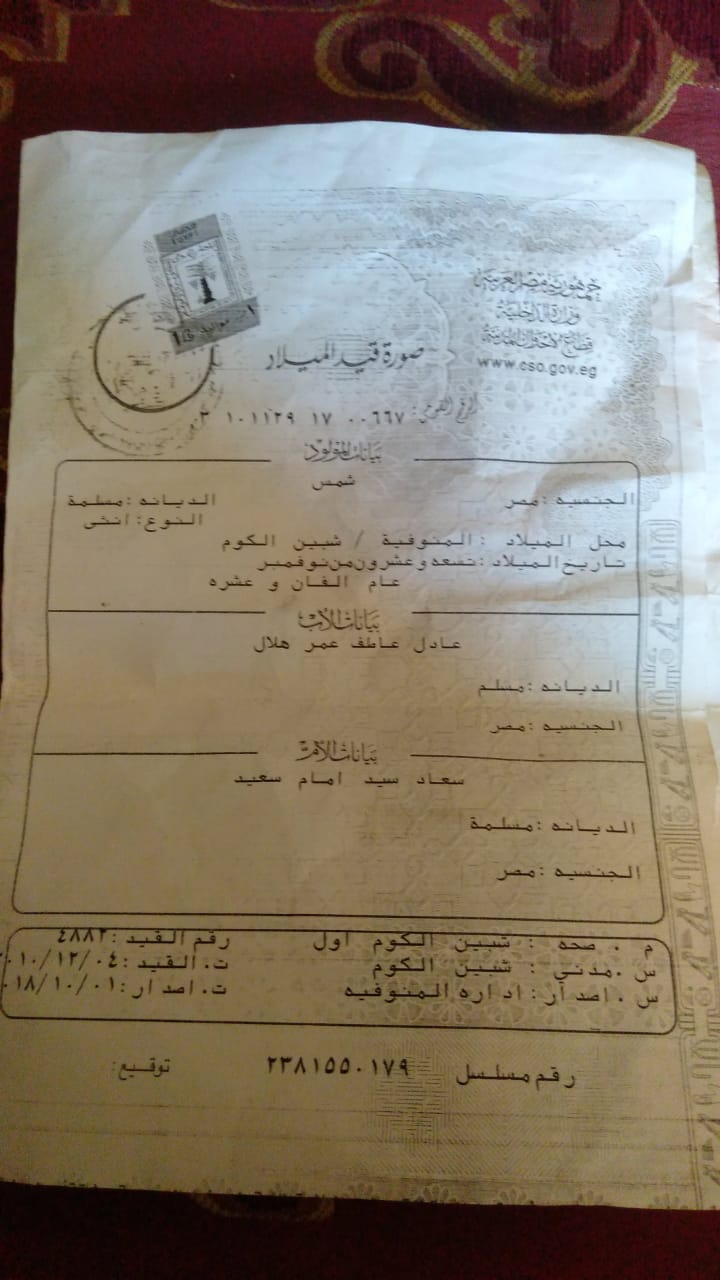 جمهورية مصر العربية
وزارة الداخلية
قطاع الأحوال المدنية
www.cso.gov.eg
صورة قيد الميلاد
الرقم القومى: ٠٠٦٦٧ ١٧ ١٠١١٢٩ ٣
بيانات المولود
شمس
الجنسيه :مصر الديانه :مسلمة
النوع: انثى
محل الميلاد : المنوفية / شبين الكوم
تاريخ الميلاد :تسعه وعشرون من نوفمبر
عام الفان و عشره
بيانات الأب
عادل عاطف عمر هلال
الديانه :مسلم
الجنسيه :مصر
بيانات الأم
سعاد سيد امام سعيد
الديانه :مسلمة
الجنسيه :مصر
م . صحه : شبين الكوم اول رقم القيد :٤٨٨٢
س .مدني : شبين الكوم ت. القيد :١٠/١٢/٠٤
س .اصدار : اداره المنوفيه ت. اصدار :١٨/١٠/٠١
رقم مسلسل ٢٣٨١٥٥٠١٧٩ توقيع: